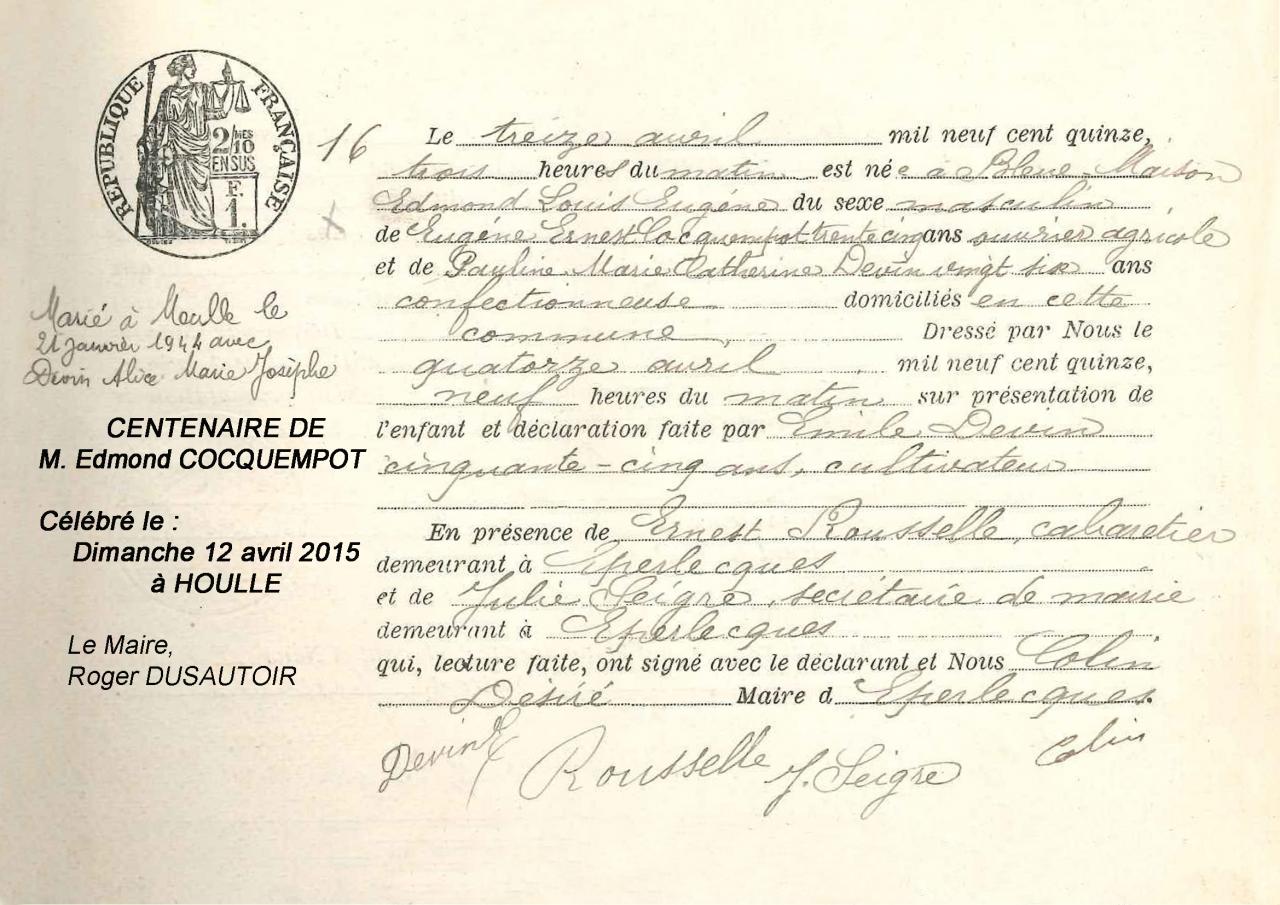 RÉPUBLIQUE FRANÇAISE
2/10 MES
EN SUS
F.
1.
16
Le treize avril mil neuf cent quinze,
trois heures du matin est né à Bleue-Maison
Edmond Louis Eugène du sexe masculin
de Eugène Ernest Cocquempot trente cinq ans ouvrier agricole
et de Pauline Marie Catherine Devin vingt six ans
confectionneuse domiciliés en cette
commune, Dressé par Nous le
quatorze avril mil neuf cent quinze,
neuf heures du matin sur présentation de
l'enfant et déclaration faite par Emile Devin
cinquante-cinq ans, cultivateur
En présence de Ernest Rousselle, cabaretier
demeurant à Eperlecques
et de Julie Seigre, secrétaire de mairie
demeurant à Eperlecques
qui, lecture faite, ont signé avec le déclarant et Nous Colin
Désiré Maire d Eperlecques.
Devin E Rousselle J. Seigre Colin
Marié à Moulle le
21 Janvier 1944 avec
Devin Alice Marie Josèphe
CENTENAIRE DE
M. Edmond COCQUEMPOT
Célébré le :
Dimanche 12 avril 2015
à HOULLE
Le Maire,
Roger DUSAUTOIR